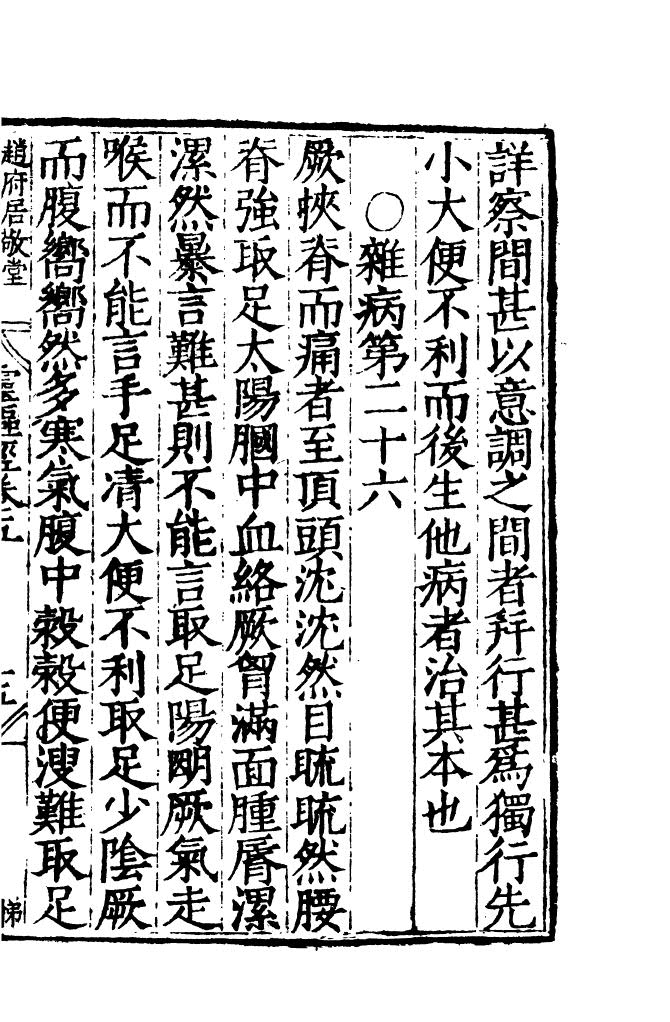 詳察間甚以意調之間者并行甚爲獨行先
小大便不利而後生他病者治其本也
○雜病第二十六
厥挾脊而痛者至頂頭沈沈然目䀮䀮然腰
脊強取足太陽膕中血絡厥胷滿面腫脣漯
漯然暴言難甚則不能言取足陽明厥氣走
喉而不能言手足清大便不利取足少陰厥
而腹嚮嚮然多寒氣腹中榖榖便溲難取足
趙府居敬堂
靈樞經卷五